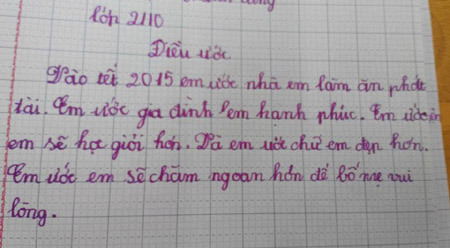 lớn 2/10
Điều ước
Vào tết 2015 em ước nhà em làm ăn phát
tài. Em ước gia đình em hạnh phúc. Em ước
em sẽ học giỏi hơn. Và em ước chữ em đẹp hơn.
Em ước em sẽ chăm ngoan hơn để bố mẹ vui
lòng.